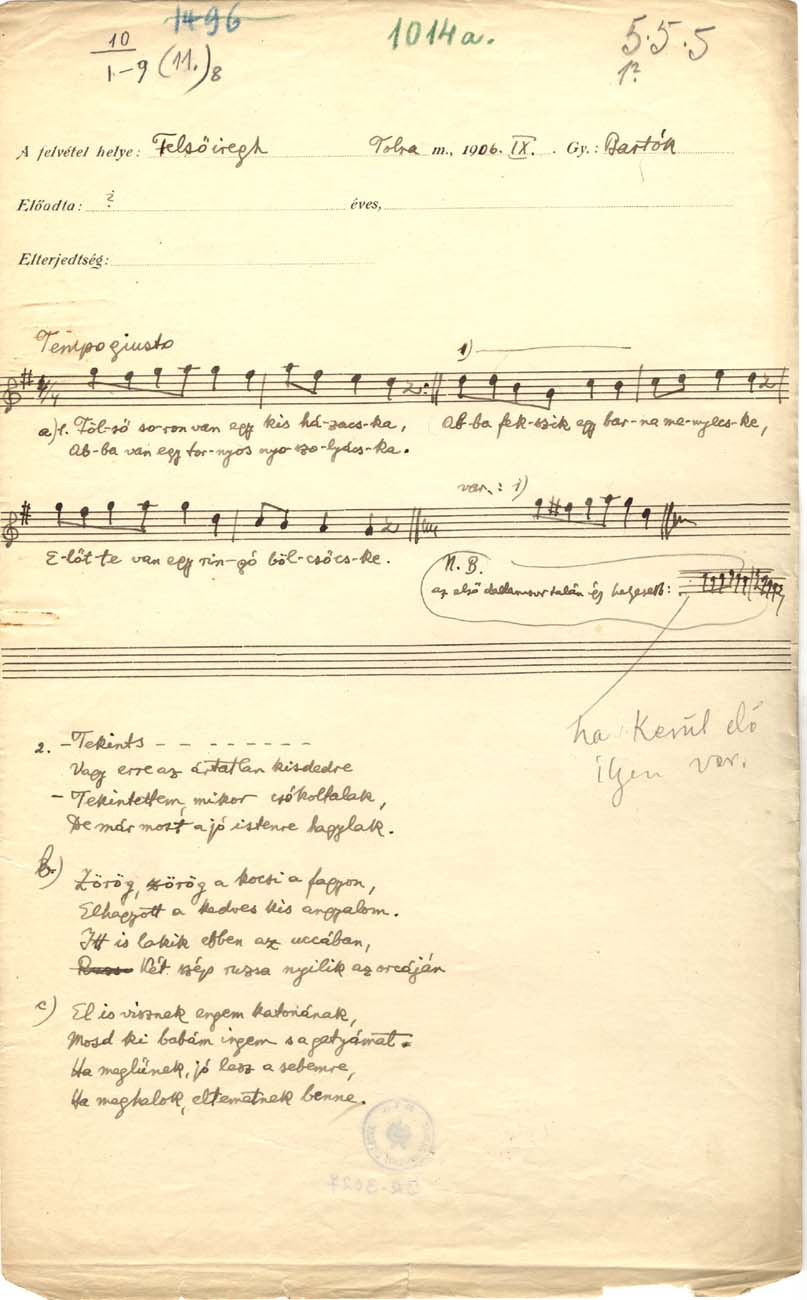 1496
10
1–9 (11.)8
1014a.
5.5.5
1?
A felvétel helye: Felsőiregh Tolna m., 1906. IX. Gy.: Bartók
Előadta: ? éves,
Elterjedtség:
Tempo giusto
1)
4/4
a) 1. Föl-ső so-ron van egy kis há-zacs-ka, Ab-ba fek-szik egy bar-na me-nyecs-ke,
Ab-ba van egy tor-nyos nyo-szo-lyács-ka.
var.: 1)
E-lőt-te van egy rin-gó böl-csőcs-ke.
N.B.
az első dallamsor talán így helyesebb:
ha kerül elő
ilyen var.
2. – Tekints – – – – – – – –
Vagy erre az ártatlan kisdedre
– Tekintettem, mikor csókoltalak,
De már most a jó istenre hagylak.
b.) Zörög, zörög a kocsi a fagyon,
Elhagyott a kedves kis angyalom.
Itt is lakik ebben az uccában,
Két szép ruzsa nyilik az orcáján
c) El is visznek engem katonának,
Mosd ki babám ingem s a gatyámat.
Ha meglűnek, jó lesz a sebemre,
Ha meghalok, eltemetnek benne.